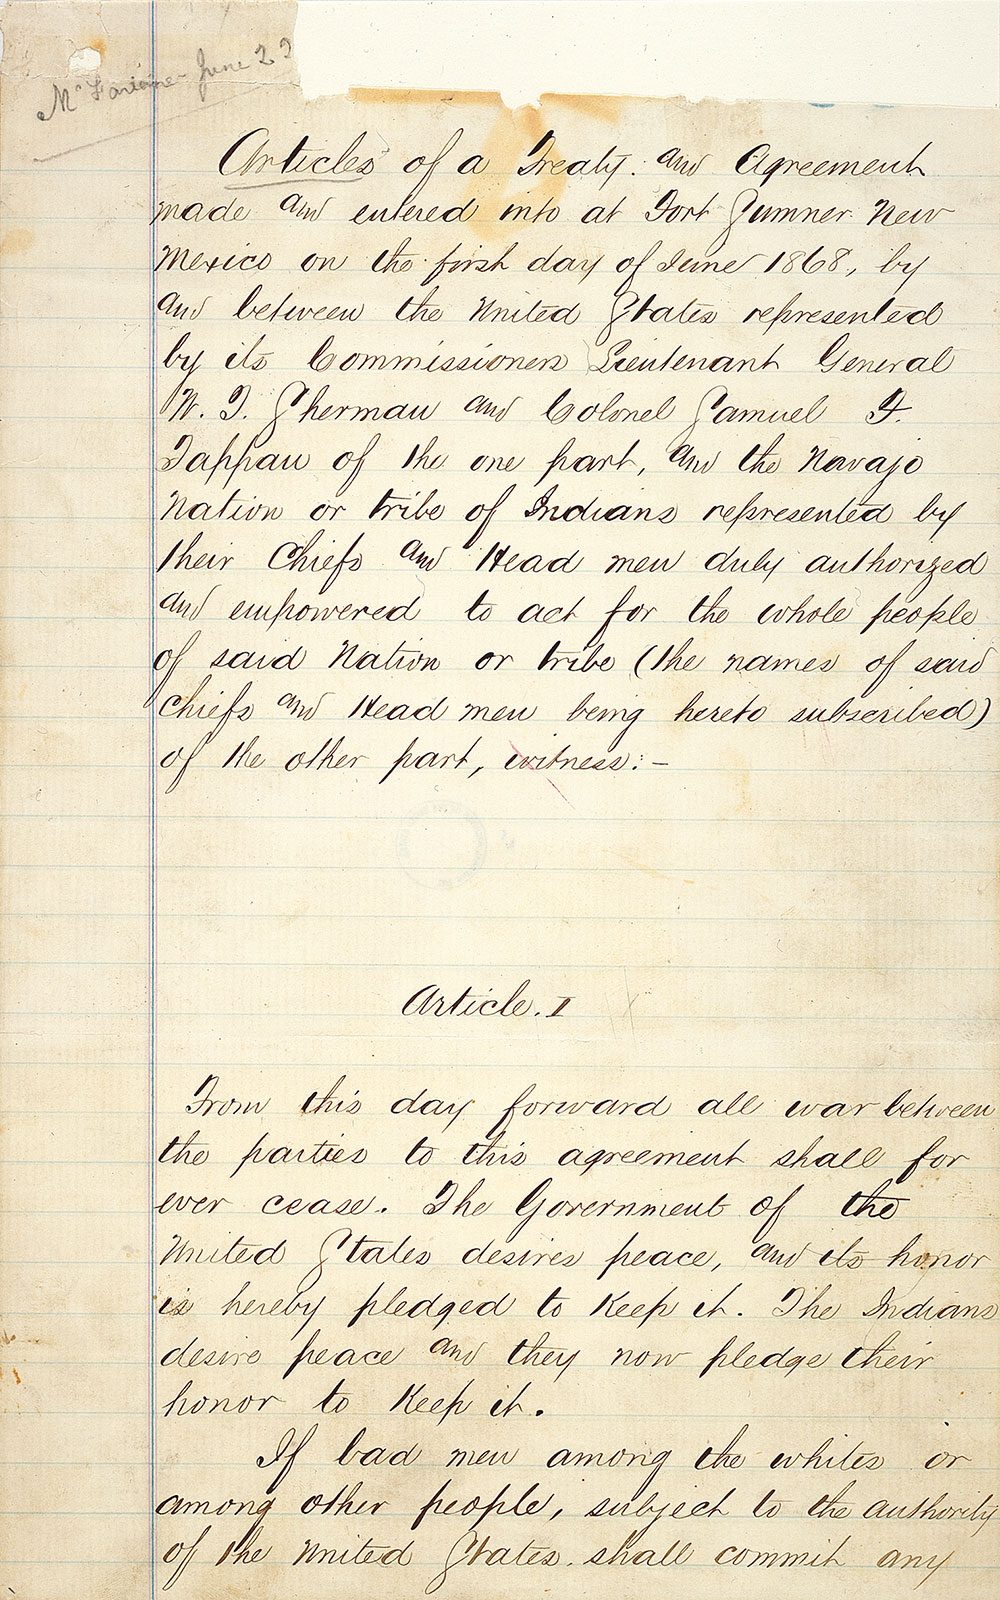 June 22
Articles of a Treaty and Agreement
made and entered into at Fort Sumner New
Mexico on the first day of June 1868, by
and between the United States represented
by its Commissioners Lieutenant General
W. T. Sherman and Colonel Samuel F.
Tappan of the one part, and the Navajo
Nation or tribe of Indians represented by
their Chiefs and Head men duly authorized
and empowered to act for the whole people
of said Nation or tribe (the names of said
Chiefs and Head men being hereto subscribed)
of the other part, witness:-
Article. I
From this day forward all war between
the parties to this agreement shall for
ever cease. The Government of the
United States desires peace, and its honor
is hereby pledged to Keep it. The Indians
desire peace and they now pledge their
honor to Keep it.
If bad men among the whites or
among other people, subject to the authority
of the United States shall commit any